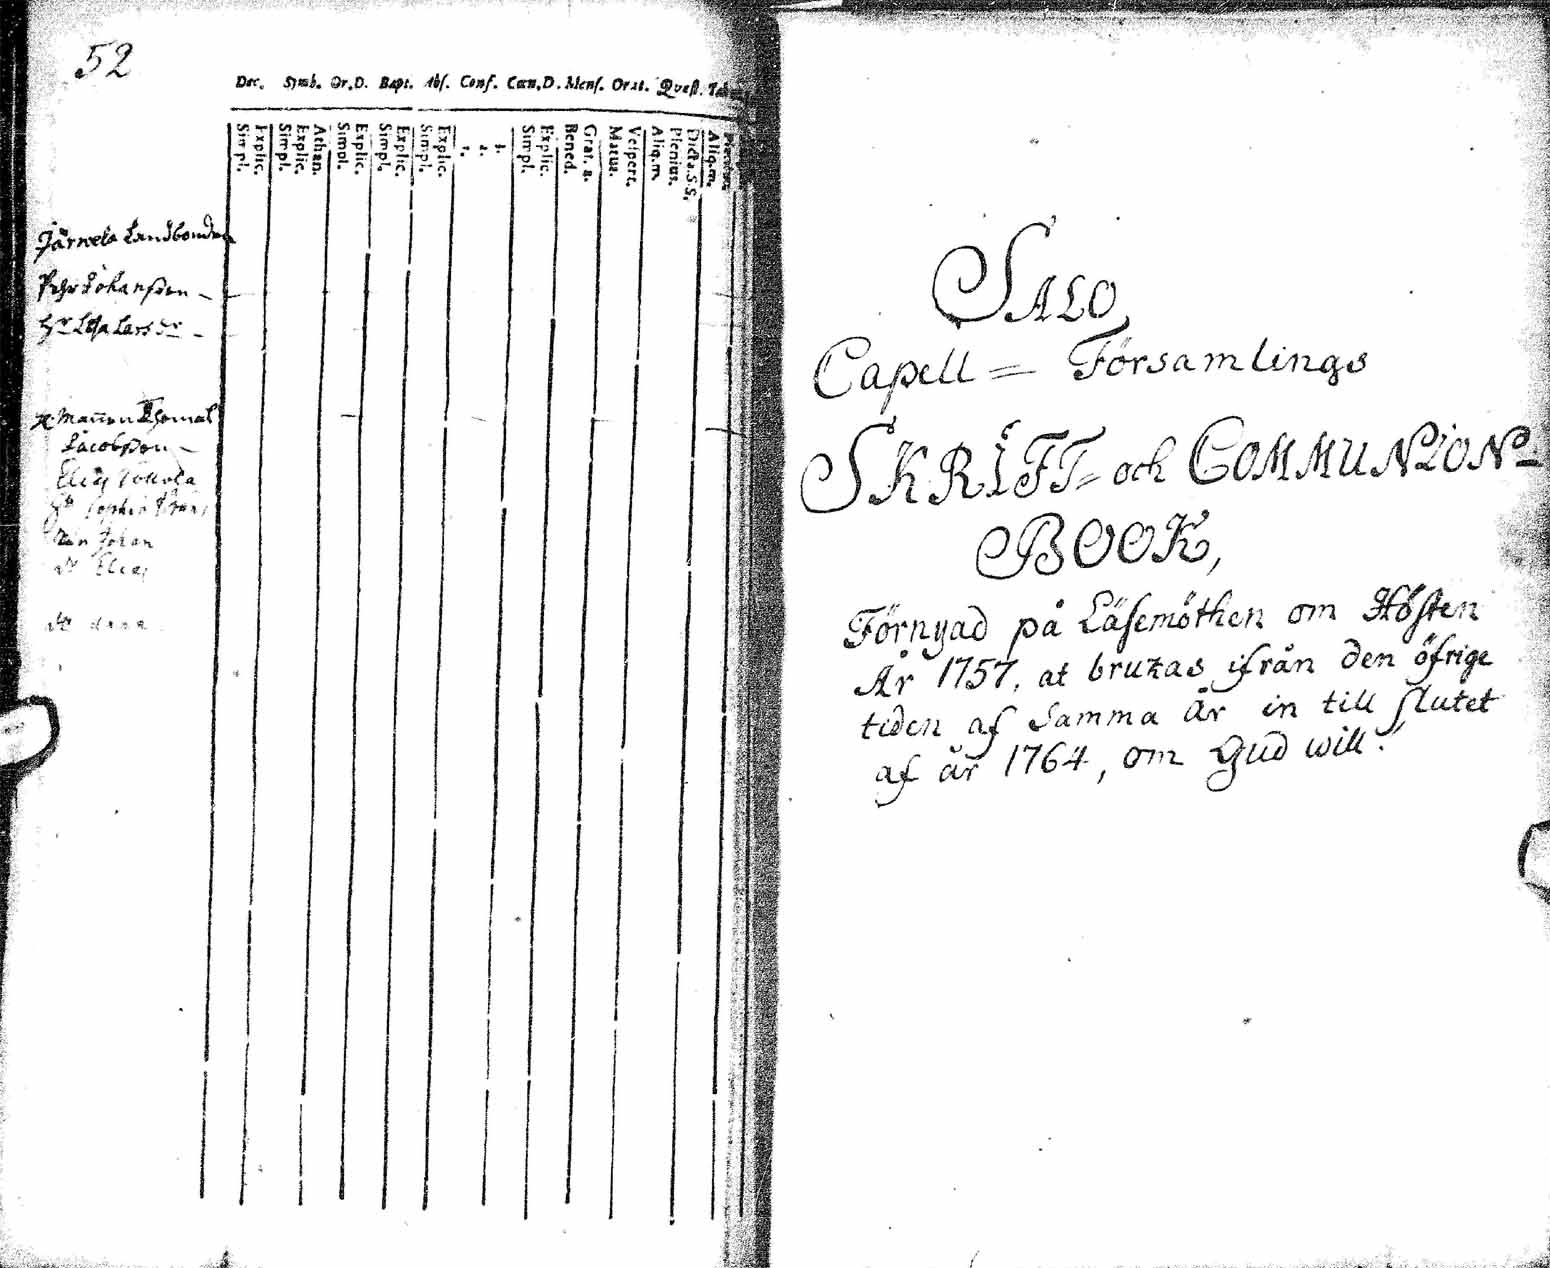 52
Dec. Symb. Or.D. Bapt. Abs. Conf. Cœn.D. Mens. Orat. Quæst.
Simpl.
Explic.
Simpl.
Explic.
Athan.
Simpl.
Explic.
Simpl.
Explic.
Simpl.
Explic.
1.
2.
3.
Simpl.
Explic.
Bened.
Grat. a.
Matut.
Vespert.
Aliq.m
Plenius.
Dicta.S.S.
Aliq.m.
Landbonden
Johansson
Lars
Thomas
Jacobsson
Elias
Sophia
Johan
Elias
SALO
Capell = Församlings
SKRIFT= och COMMUNION=
BOOK,
Förnyad på Läsemöthen om Hösten
År 1757, at brukas ifrån den öfrige
tiden af samma År in till slutet
af år 1764, om Gud will.